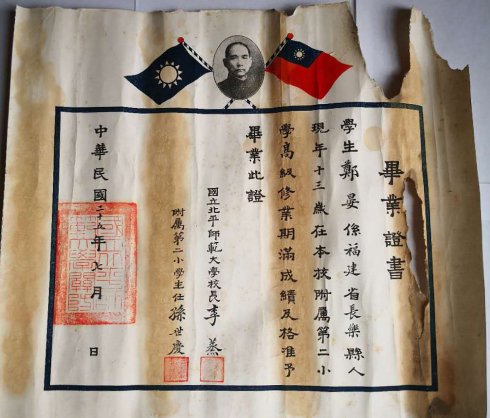 畢業證書
學生鄭晏係福建省長樂縣人
現年十三歲在本校附屬第二小
學高級修業期滿成績及格准予
畢業此證
國立北平師範大學校長李蒸
附屬第二小學主任孫世慶
中華民國二十五年七月 日